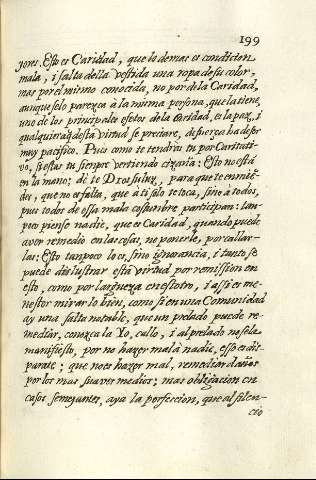 199
jores. Esto es Caridad, que lo demas es condicion
mala, i salta della vestida una ropa de su color,
mas por el mismo conocida, no por de la Caridad,
aunque solo parezca à la misma persona, que la tiene,
uno de los principales efetos de la Caridad, es la paz, i
qualquiera q̃ desta virtud se preciare, de fuerça ha de ser
muy pacifico. Pues como te tendrìa tu por Caritati-
vo, si estas tu siempre vertiendo cizaña: Esto no està
en la mano; dè te Dios su luz, para que te enmiẽ-
des, que no es falta, que à tì solo te toca, sino à todos,
pues todos de essa mala costumbre participan: tan-
poco piense nadie, que es Caridad, quando puede
aver remedio en las cosas, no ponerle, por callar-
las: Esto tanpoco lo es, sino ignorancia, i tanto se
puede deslustrar està virtud por remission en
esto, como por largueza en estotro, i assi es me-
nestor mirarlo bien, como si en una Comunidad
ay una falta notable, que un prelado puede re-
mediar, conozca la Yo, callo, i al prelado no se la
manifiesto, por no hazer mal à nadie, esso es dis-
parate; que no es hazer mal, remediar daños
por los mas suaves medios; mas obligacion en
casos semejantes, aya la perfeccion, que al silen-
cio